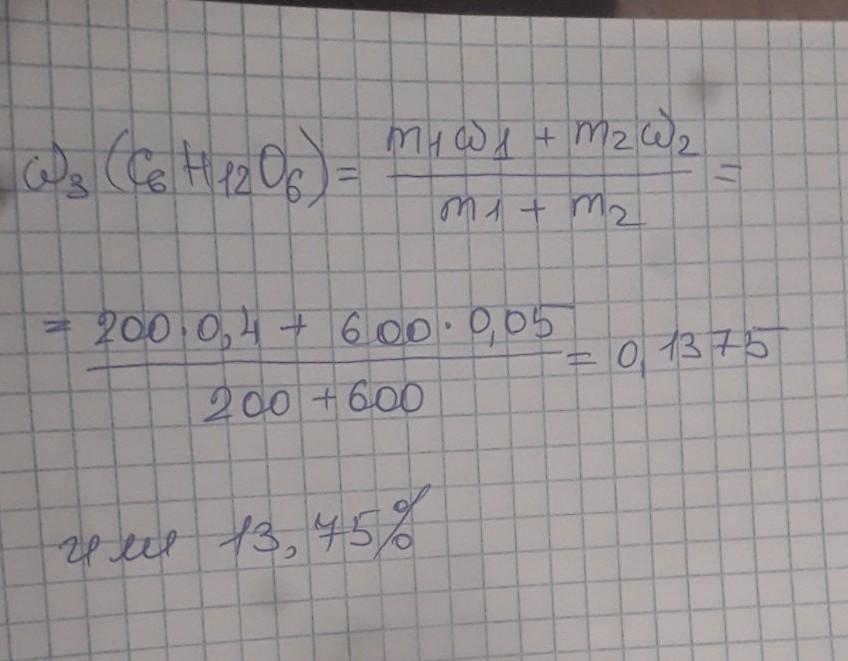 ω₃(C₆H₁₂O₆) = (m₁ω₁ + m₂ω₂)/(m₁ + m₂) =
= (200·0,4 + 600·0,05)/(200 + 600) = 0,1375
или 13,75%